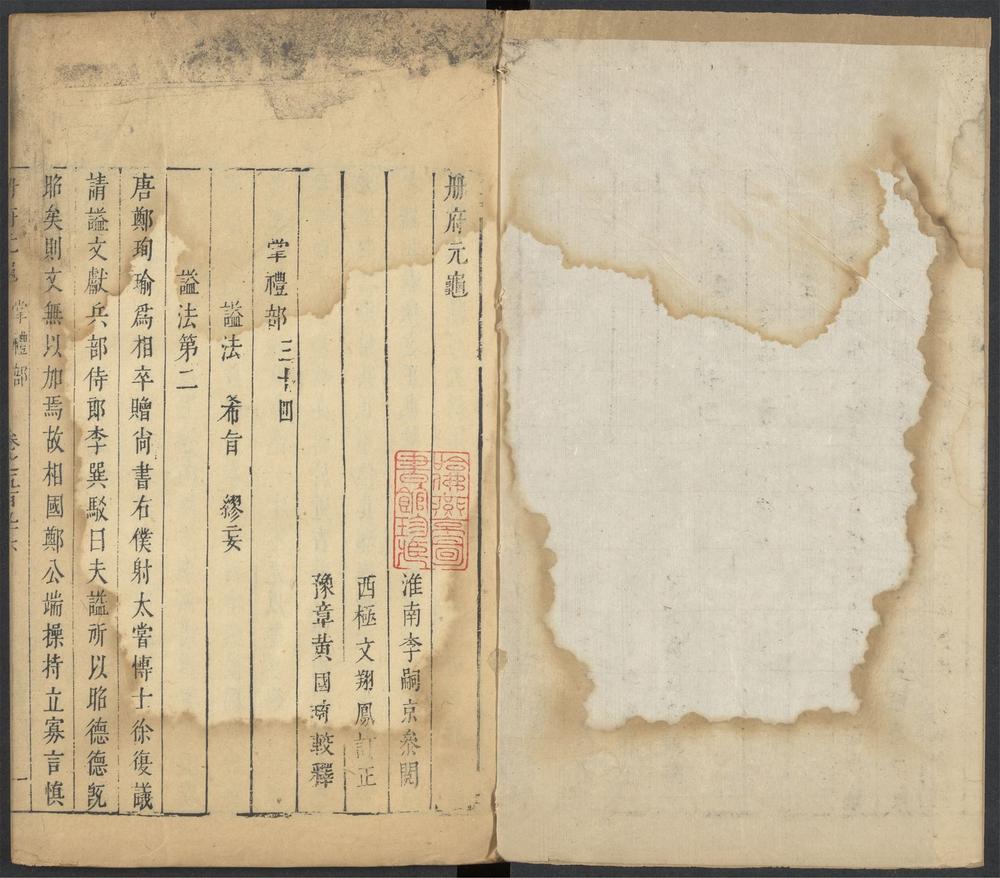 冊府元龜
淮南李嗣京叅閱
西極文翔鳳訂正
豫章黃國琦較釋
掌禮部三十四
諡法 希旨 繆妄
諡法第二
唐鄭珣瑜爲相卒贈尚書右僕射太嘗博士徐復議
請諡文獻兵部侍郎李巽駁曰夫諡所以昭德德旣
昭矣則文無以加焉故相國鄭公端操持立寡言慎
掌禮部